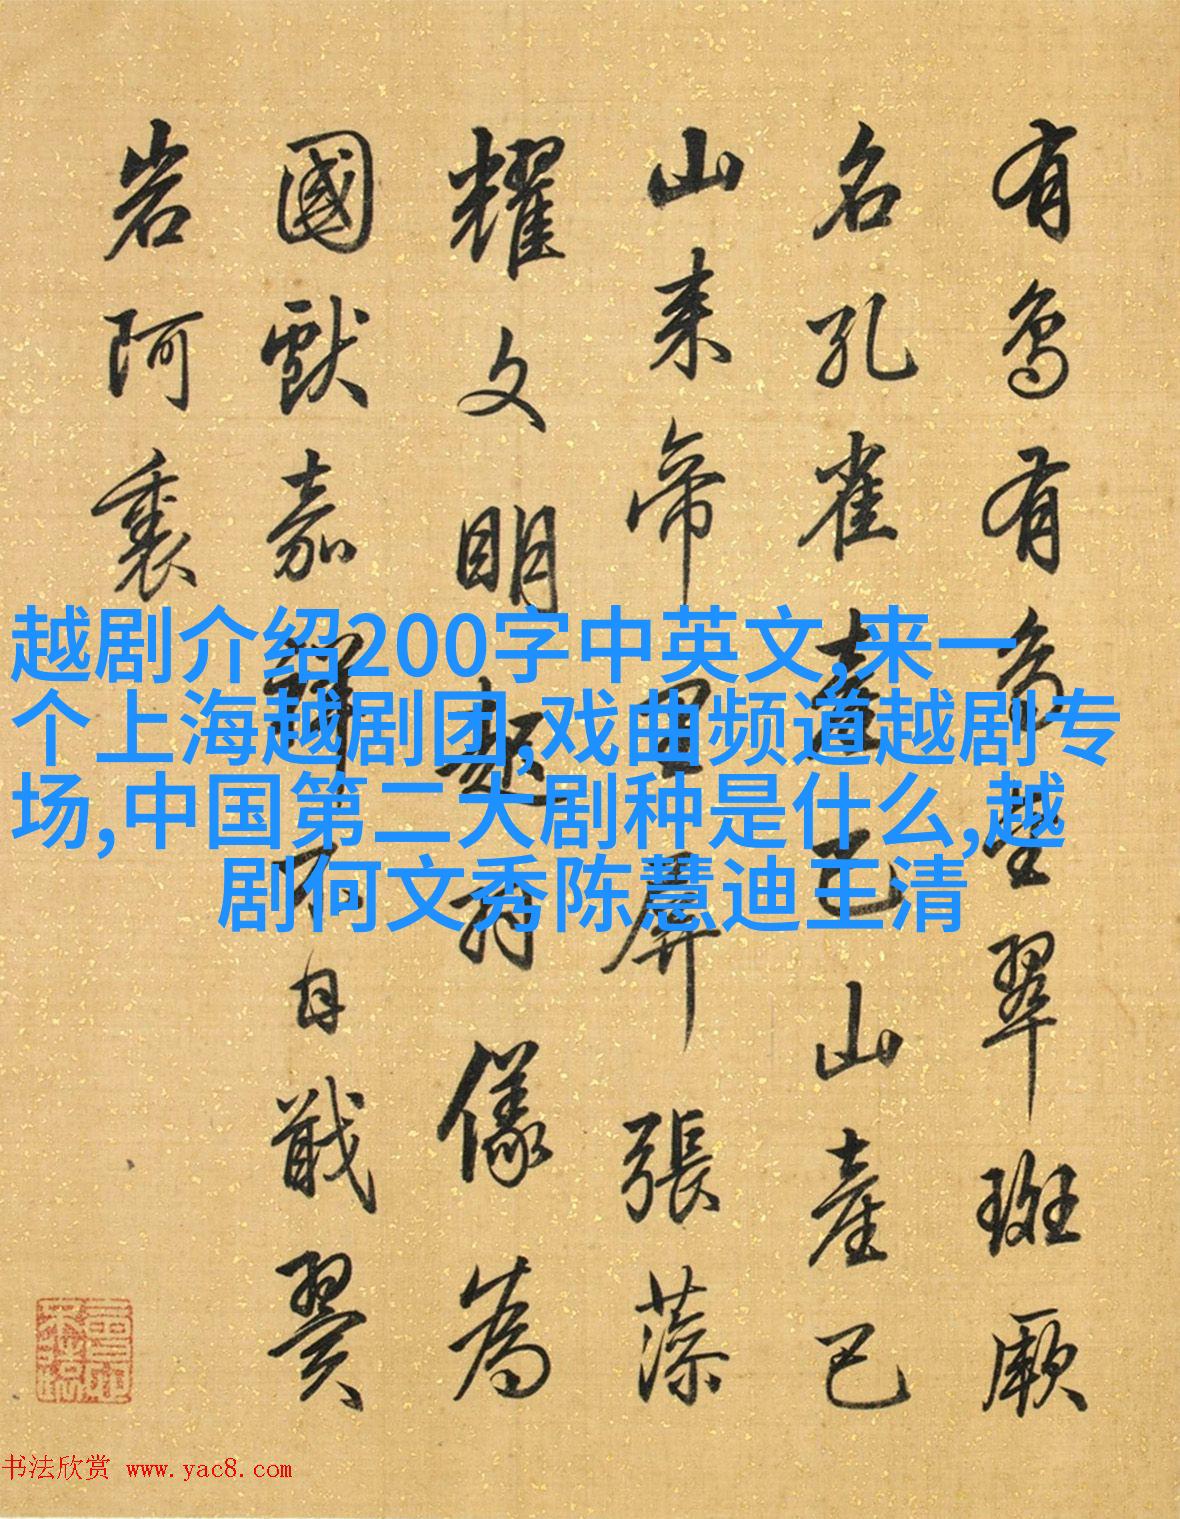 有鳥有鳥翠斑厥
名孔雀產已山產已
山來帝里屏張藻
耀文明起羽儀為
國獻嘉日戢翼
岩阿裏
越剧介绍200字中英文,来一
个上海越剧团,戏曲频道越剧专
场,中国第二大剧种是什么,越
剧何文秀陈慧迪王清
书法欣赏 www.yac8.com